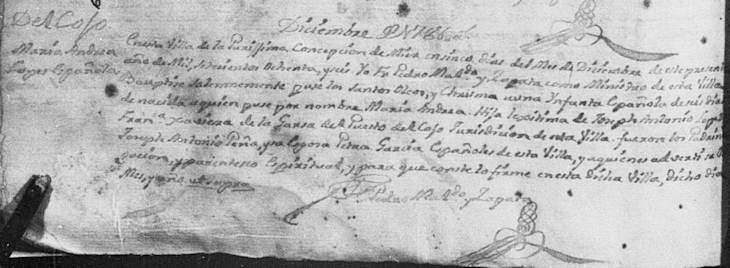 Diciembre
Del Coso
Maria Andrea
Española
En esta Villa de la Purissima Concepcion de Mier en sinco dias del Mes de Diciembre de este presente
año de Mil, Setecientos Ochenta, y seis Yo Fr Pedro Maldo y Zapata como Ministro de esta Villa
Baptise Solemnemente puse los Santos Oleos, y Chrisma a una Infanta Española de seis dias
de nacida, a quien puse por nombre Maria Andrea. Hija lexitima de Joseph Antonio
Franca Xaviera de la Garsa del Puesto del Coso Jurisdicion de esta Villa. fueron los Padrinos
Joseph Antonio Peña, y su Espora Petra Garcia Españoles de esta Villa, y a quienes adverti su Obli
gacion, y parentesco Espiritual, y para que conste lo firme en esta dicha Villa, dicho dia
Mes, y año ut supra
Fr Pedro Maldo y Zapata